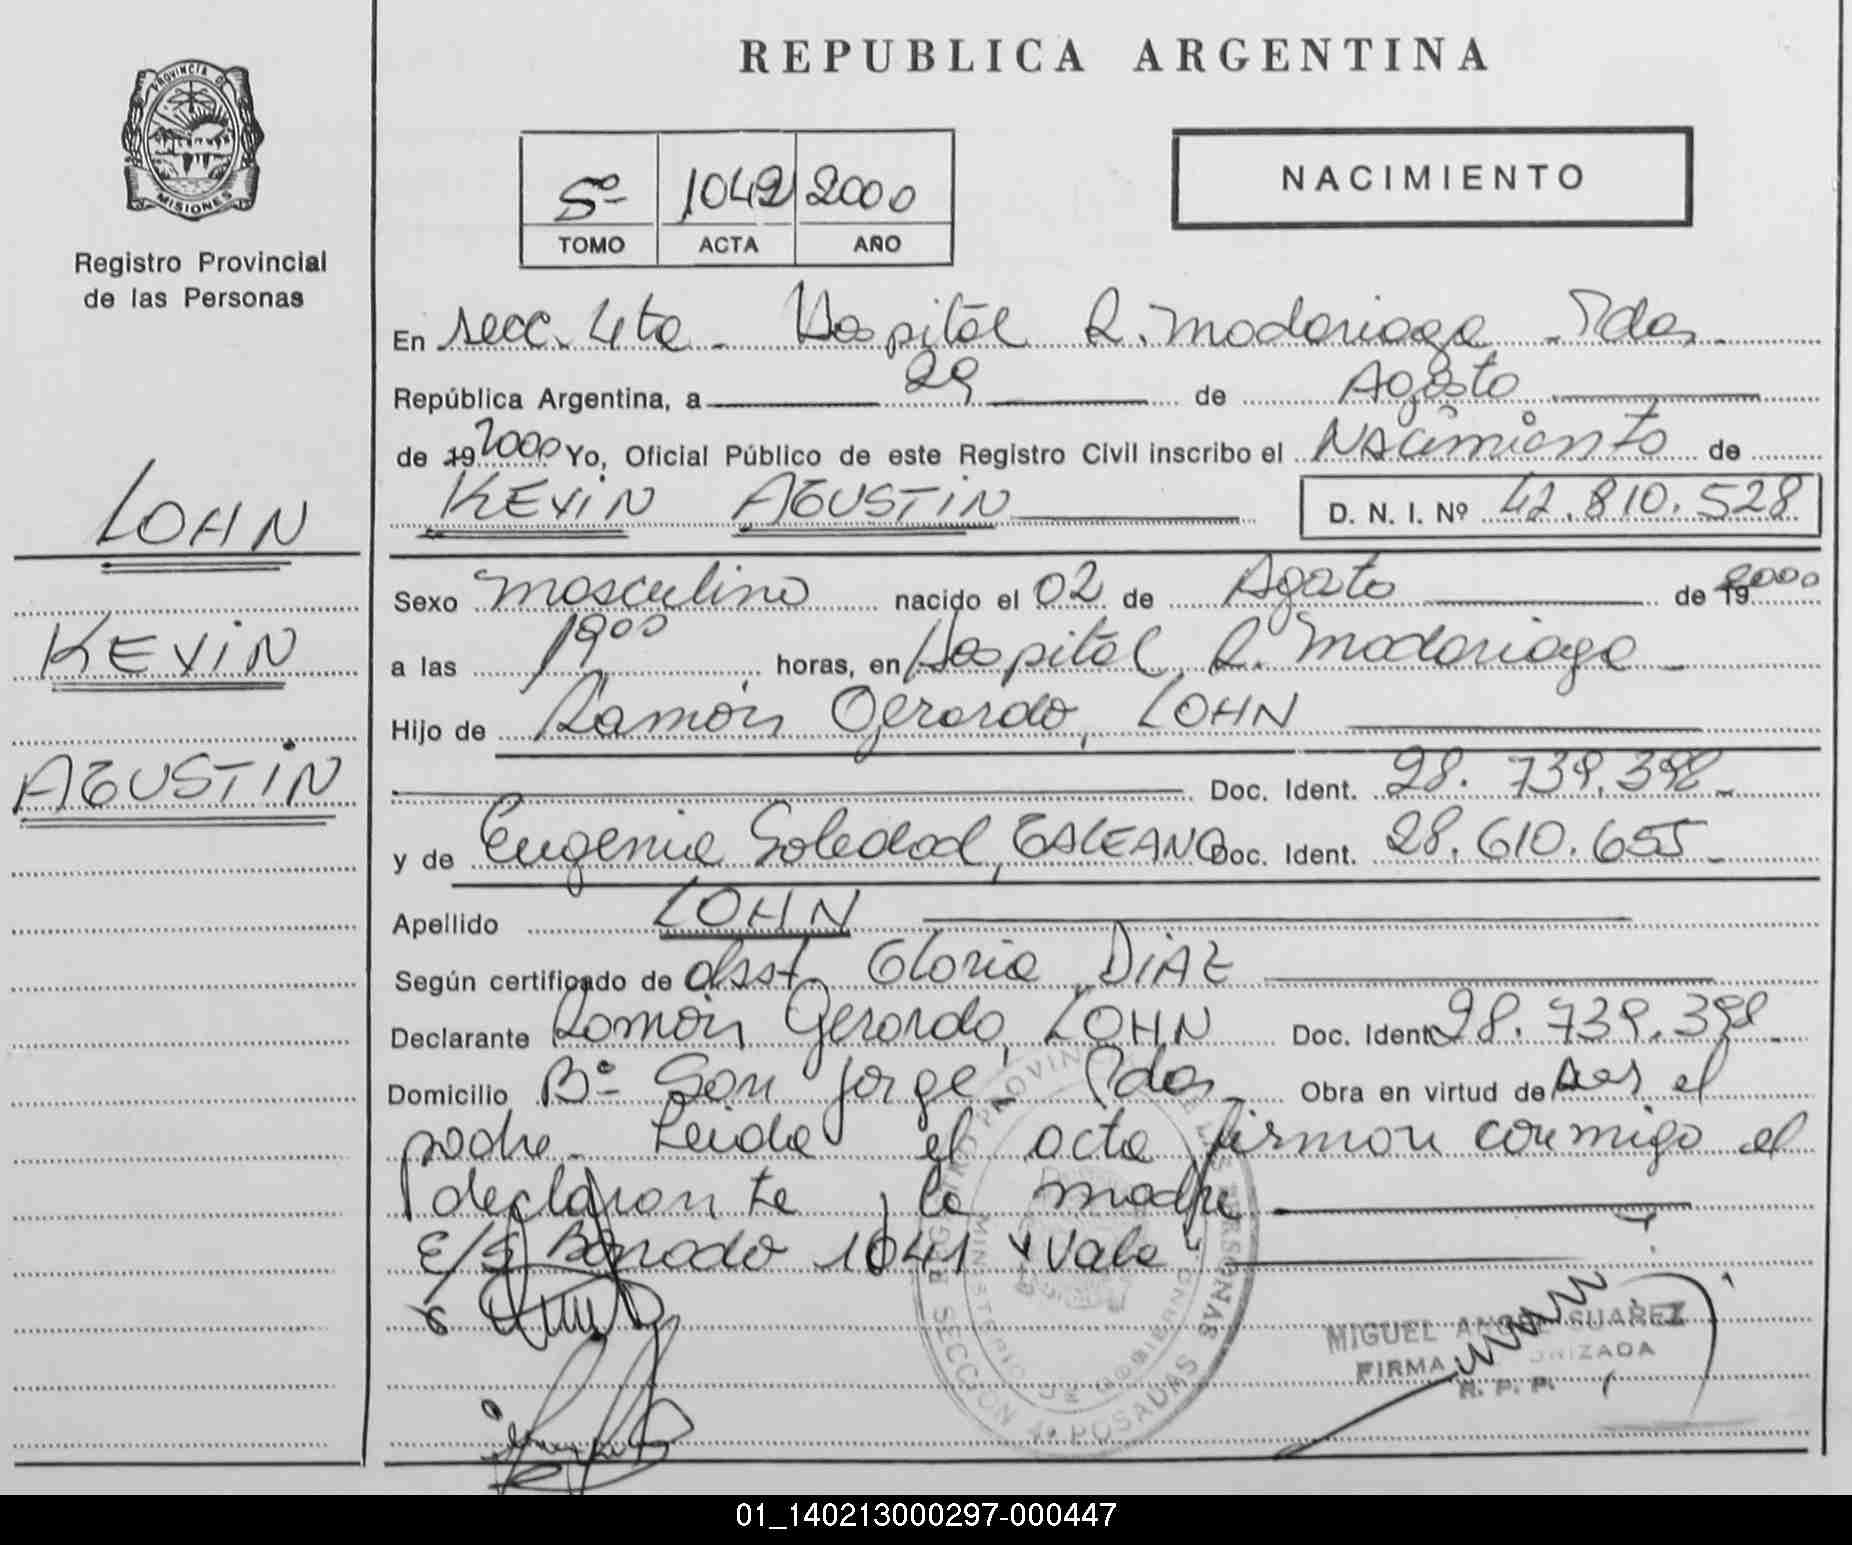 PROVINCIA DE
MISIONES
Registro Provincial
de las Personas
LOHN
KEVIN
AGUSTIN
REPUBLICA ARGENTINA
5º 1042 2000
TOMO ACTA AÑO
NACIMIENTO
En secc. 4ta - Hospital R. Madariaga - Pdas.
República Argentina, a 29 de Agosto
de 19 2000 Yo, Oficial Público de este Registro Civil inscribo el Nacimiento de
KEVIN AGUSTIN D. N. I. Nº 42.810.528
Sexo masculino nacido el 02 de Agosto de 19 2000
a las 19 00 horas, en Hospital R. Madariaga -
Hijo de Ramón Gerardo, LOHN
Doc. Ident. 28. 739.398 -
y de Eugenia Soledad, GALEANO Doc. Ident. 28.610.655 -
Apellido LOHN
Según certificado de obst. Gloria DIAZ
Declarante Ramón Gerardo, LOHN Doc. Ident. 28.739.398 -
Domicilio Bº San Jorge Pdas Obra en virtud de ser el
padre - Leída el acta firman conmigo el
declarante, la madre
E/S Borrado 1041 "Vale"
REGISTRO PROVINCIAL DE LAS PERSONAS
MINISTERIO DE GOBIERNO
SECCION 4ª POSADAS
MIGUEL ANGEL SUAREZ
FIRMA AUTORIZADA
R. P. P.
01_140213000297-000447